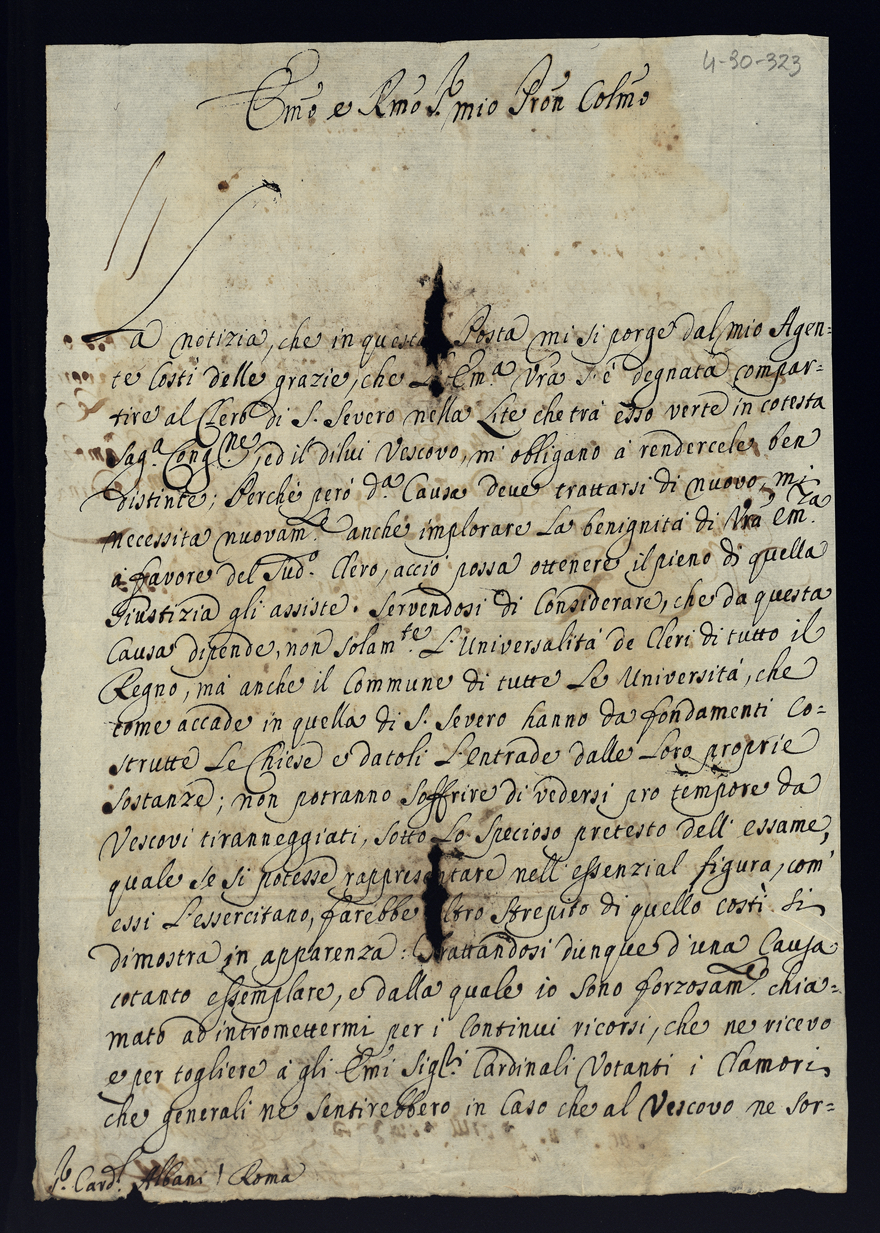 4-30-323
Emo e Rmo Sr. mio Pron Colmo
La notizia, che in questa Posta mi si porge dal mio Agen=
te costì delle grazie, che L'Em.a Vra s'è degnata compar=
tire al Clero di S. Severo nella Lite che trà esso verte in cotesta
Sag.a Cong.ne, ed il dilui Vescovo, m'obligano à rendercele ben
distinte; Perchè però d.a Causa deve trattarsi di nuovo, mi
necessita nuovam.te anche implorare La benignità di Vra Em.za
à favore del Sud.o Clero, acciò possa ottenere il pieno di quella
Giustizia gli assiste. Servendosi di Considerare, che da questa
Causa dipende, non solam.te L'Universalità de Cleri di tutto il
Regno, mà anche il Commune di tutte Le Università, che
come accade in quella di S. Severo hanno da fondamenti Co=
strutte Le Chiese e datoli L'Entrade dalle Loro proprie
sostanze; non potranno soffrire di vedersi pro tempore da
Vescovi tiranneggiati, sotto Lo specioso pretesto dell'essame,
quale se si potesse rappresentare nell'essenzial figura, com'
essi L'essercitano, farebbe altro strepito di quello costì si
dimostra in apparenza: Trattandosi dunque d'una Causa
cotanto essemplare, e dalla quale io sono forzosam.te chia=
mato ad intromettermi per i Continui ricorsi, che ne ricevo
e per togliere à gli Emi Sig.ri Cardinali Votanti i Clamori
che generali ne sentirebbero in Caso che al Vescovo ne sor=
Sr. Card.l Albani / Roma